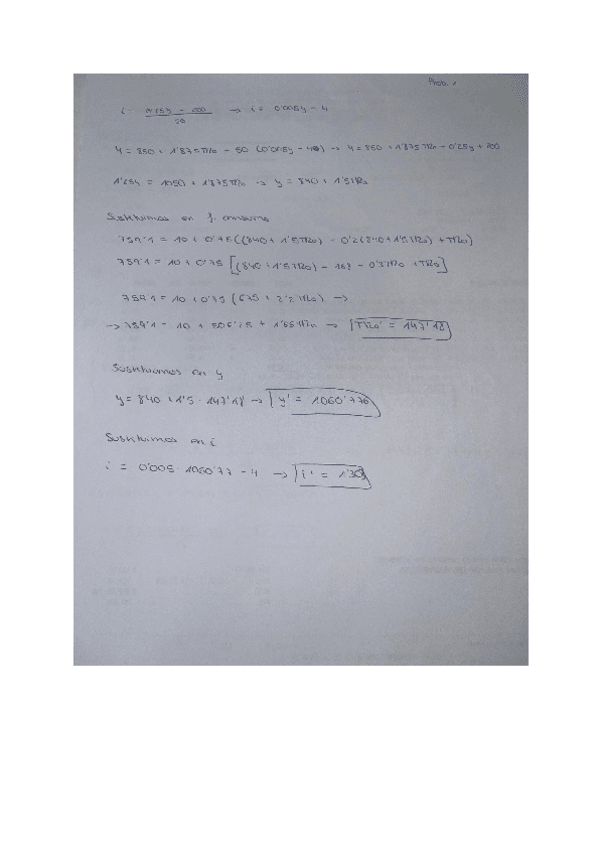 Prob. 1
i = 0'005y - 4
Y = 850 + 1'875TRo - 50 (0'005y - 4) → Y = 850 + 1'875TRo - 0'25y + 200
1'25y = 1050 + 1'875TRo → y = 840 + 1'5TRo
Sustituimos en f. consumo
759'1 = 10 + 0'75((840 + 1'5TRo) - 0'2(840 + 1'5TRo) + TRo)
759'1 = 10 + 0'75 [(840 + 1'5TRo) - 168 - 0'3TRo + TRo]
759'1 = 10 + 0'75 (675 + 2'2TRo) →
→ 759'1 = 10 + 506'25 + 1'65TRo → TRo' = 147'18
Sustituimos en y
y = 840 + 1'5 · 147'18 → y' = 1060'776
Sustituimos en i
i = 0'005 · 1060'77 - 4 → i' = 1'30